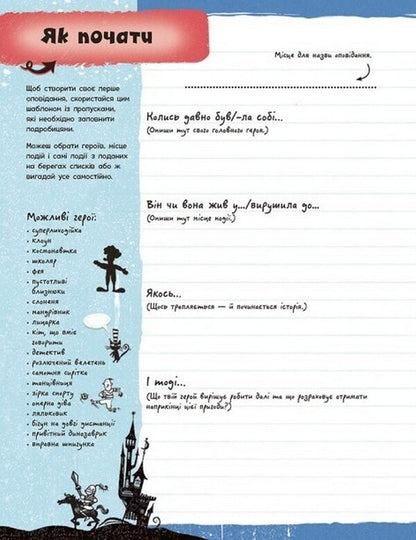 Як почати
Місце для назви оповідання.
Щоб створити своє перше
оповідання, скористайся цим
шаблоном із пропусками,
які необхідно заповнити
подробицями.
Можеш обрати героїв, місце
подій і самі події з поданих
на берегах списків або ж
вигадай усе самостійно.
Можливі герої:
• суперлиходійка
• клоун
• космонавтка
• школяр
• фея
• пустотливі
близнюки
• слоненя
• мандрівник
• лицарка
• кіт, що вміє
говорити
• детектив
• розлючений велетень
• самотня сирітка
• танцівниця
• зірка спорту
• оперна діва
• ляльковик
• бігун на довгі дистанції
• привітний динозаврик
• вправна шпигунка
Колись давно був/-ла собі...
(Опиши тут свого головного героя.)
Він чи вона жив у.../вирушила до...
(Опиши тут місце події.)
Якось...
(Щось трапляється — й починається історія.)
І тоді...
(Що твій герой вирішує робити далі та що розраховує отримати
наприкінці цієї пригоди?)